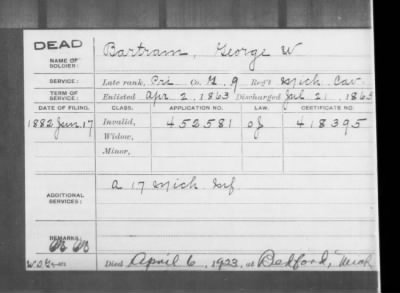 DEAD
NAME OF SOLDIER: Bartram, George W
SERVICE: Late rank, Pri Co. 9 Reg't Mich Cav.
TERM OF SERVICE: Enlisted Apr 2, 1863 Discharged Jul 21, 1865
DATE OF FILING. CLASS. APPLICATION NO. LAW. CERTIFICATE NO.
1882 Jun. 17 Invalid, 452581 418395
Widow,
Minor,
ADDITIONAL SERVICES: A 17 Mich Inf
REMARKS:
Died April 6, 1923, at Bedford, Mich